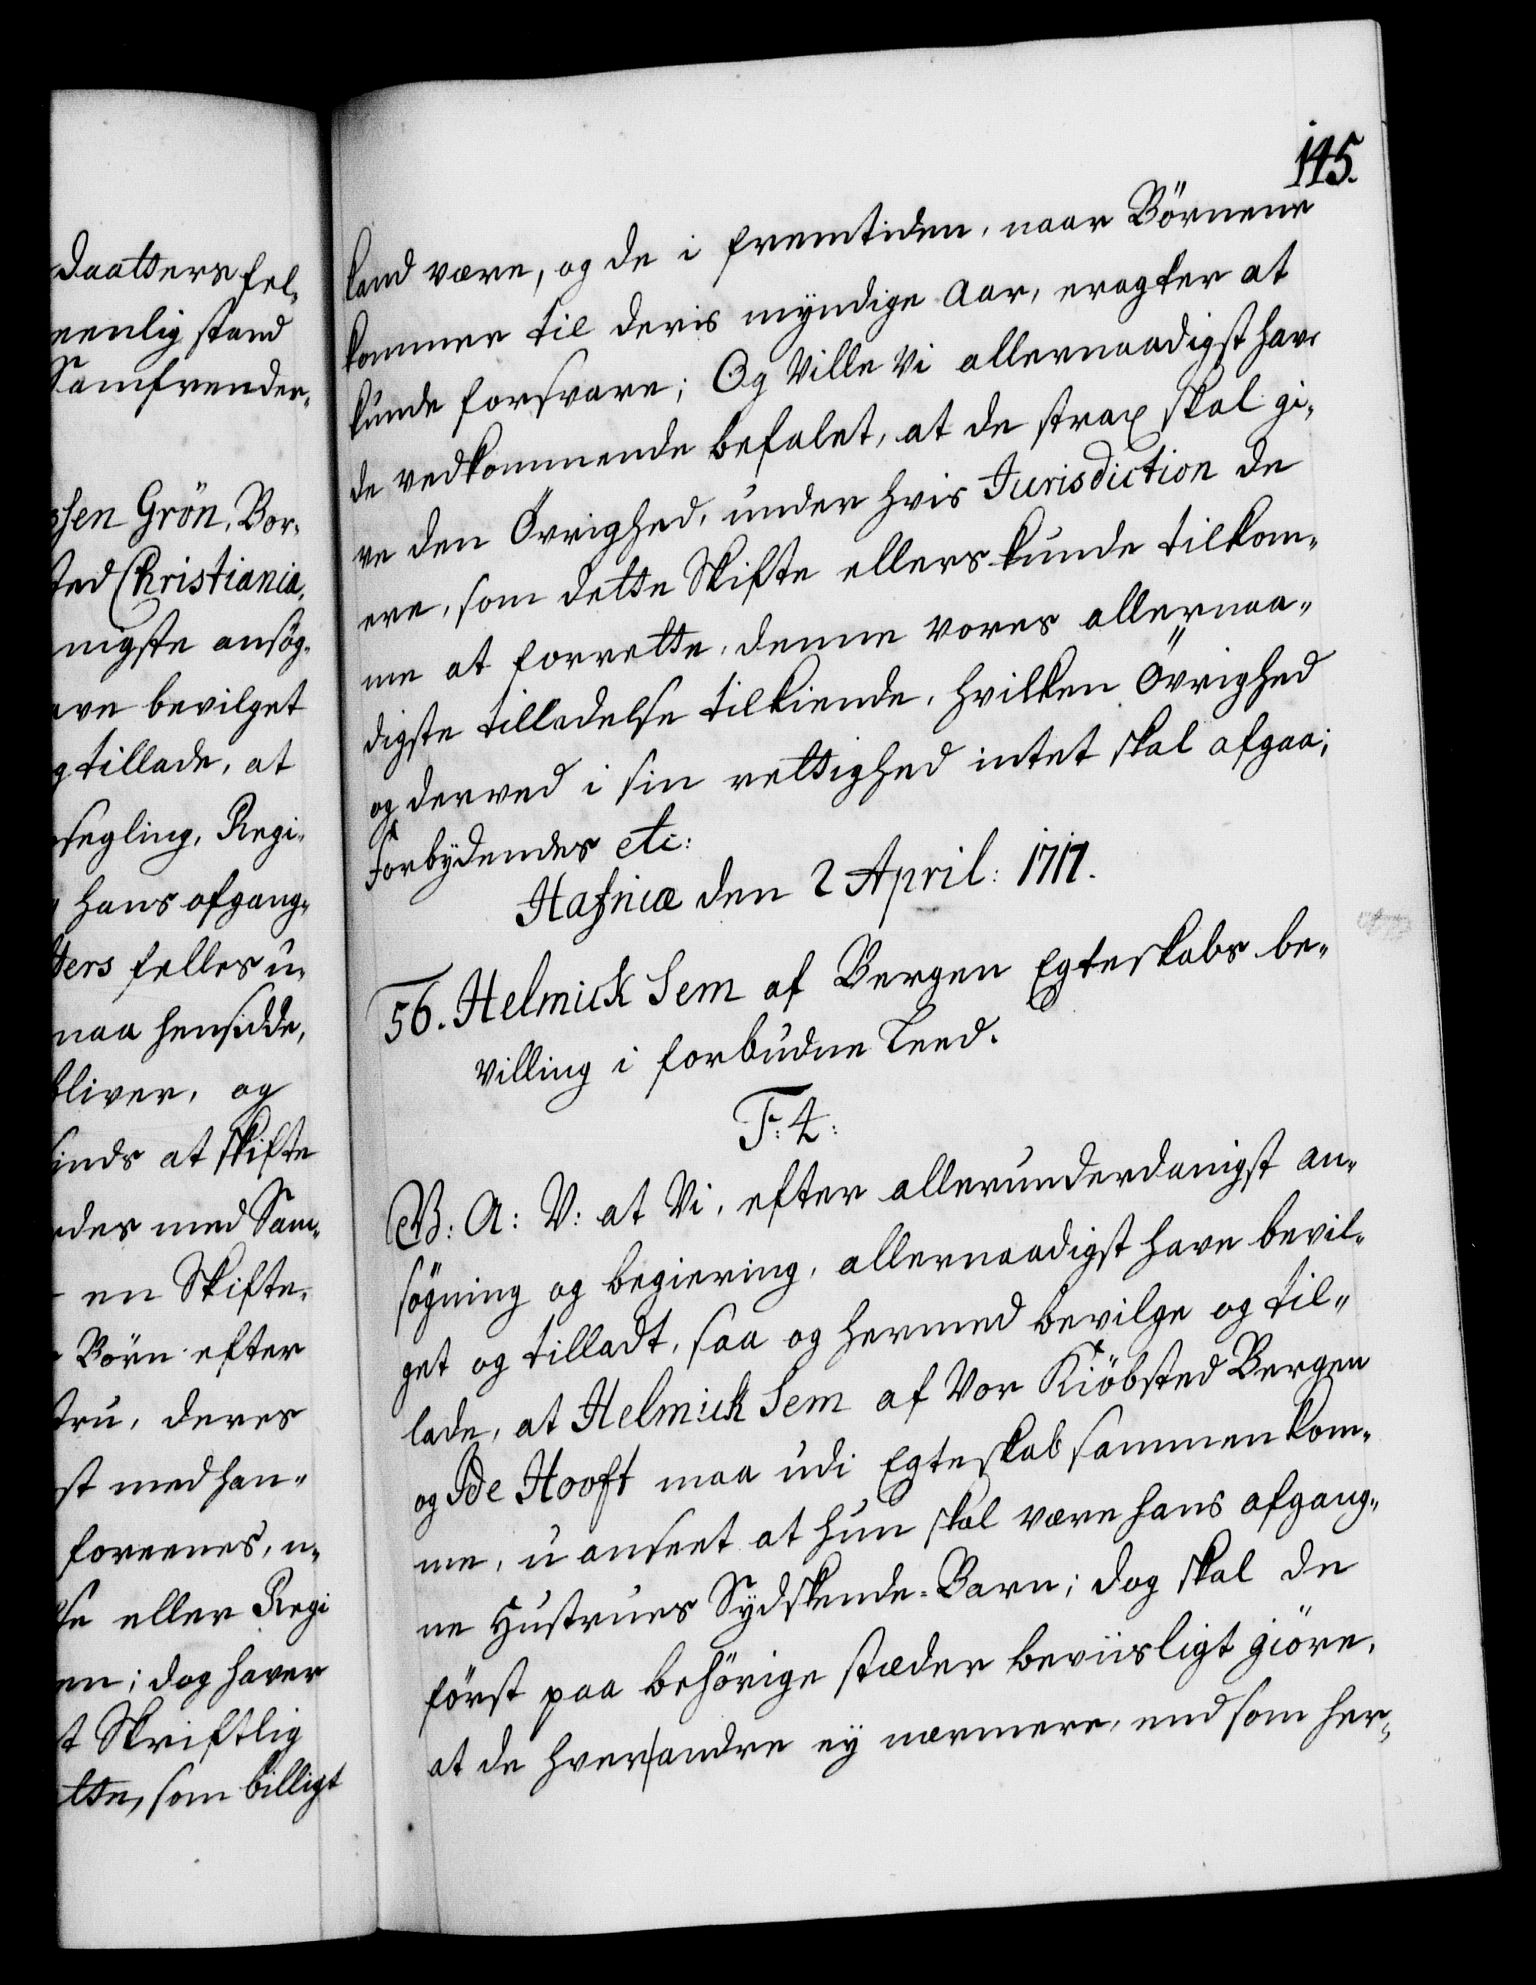 daatters fel-
eenlig stand
Samfrender,
sen Grön, Bor-
sted Christiania,
nigste ansög-
ave bevilget
g tillade, at
segling, Regi-
hans afgang-
ters felles u-
maa hensidde,
bliver, og
sinds at skifte
ndes med Sam-
en Skifte-
Börn efter
stru, deres
st med han-
foreenes, u-
lse eller Regi
en; dog haver
t Skriftlig
ette, som billigt
145.
kand være, og de i fremtiden, naar Börnene
kommer til deris myndige Aar, eragter at
kunde forsvare; Og Ville Vi allernaadigst hav-
de vedkommende befalet, at de strax skal gi-
ve den Övrighed, under hvis Jurisdiction de
ere, som dette Skifte ellers kunde tilkom-
me at forrette, denne vores allernaa-
digste tilladelse tilkiende, hvilken Övrighed
og derved i sin rettighed intet skal afgaa;
Forbydendes etc:
Hafniæ den 2 April: 1717.
56. Helmick Sem af Bergen Egteskabs be-
villing i forbudne Leed.
F: 4:
G: A: V: at Vi, efter allerunderdanigst an-
sögning og begiering, allernaadigst have bevil-
get og tilladt, saa og hermed bevilge og til-
lade, at Helmick Sem af Vor Kiöbsted Bergen
og Ide Hooft maa udi Egteskab sammenkom-
me, u anseet at hun skal være hans afgang-
ne Hustrues Sydskende-Barn; dog skal de
först paa behörige stæder beviisligt giöre,
at de hver andre ey nærmere, end som her-